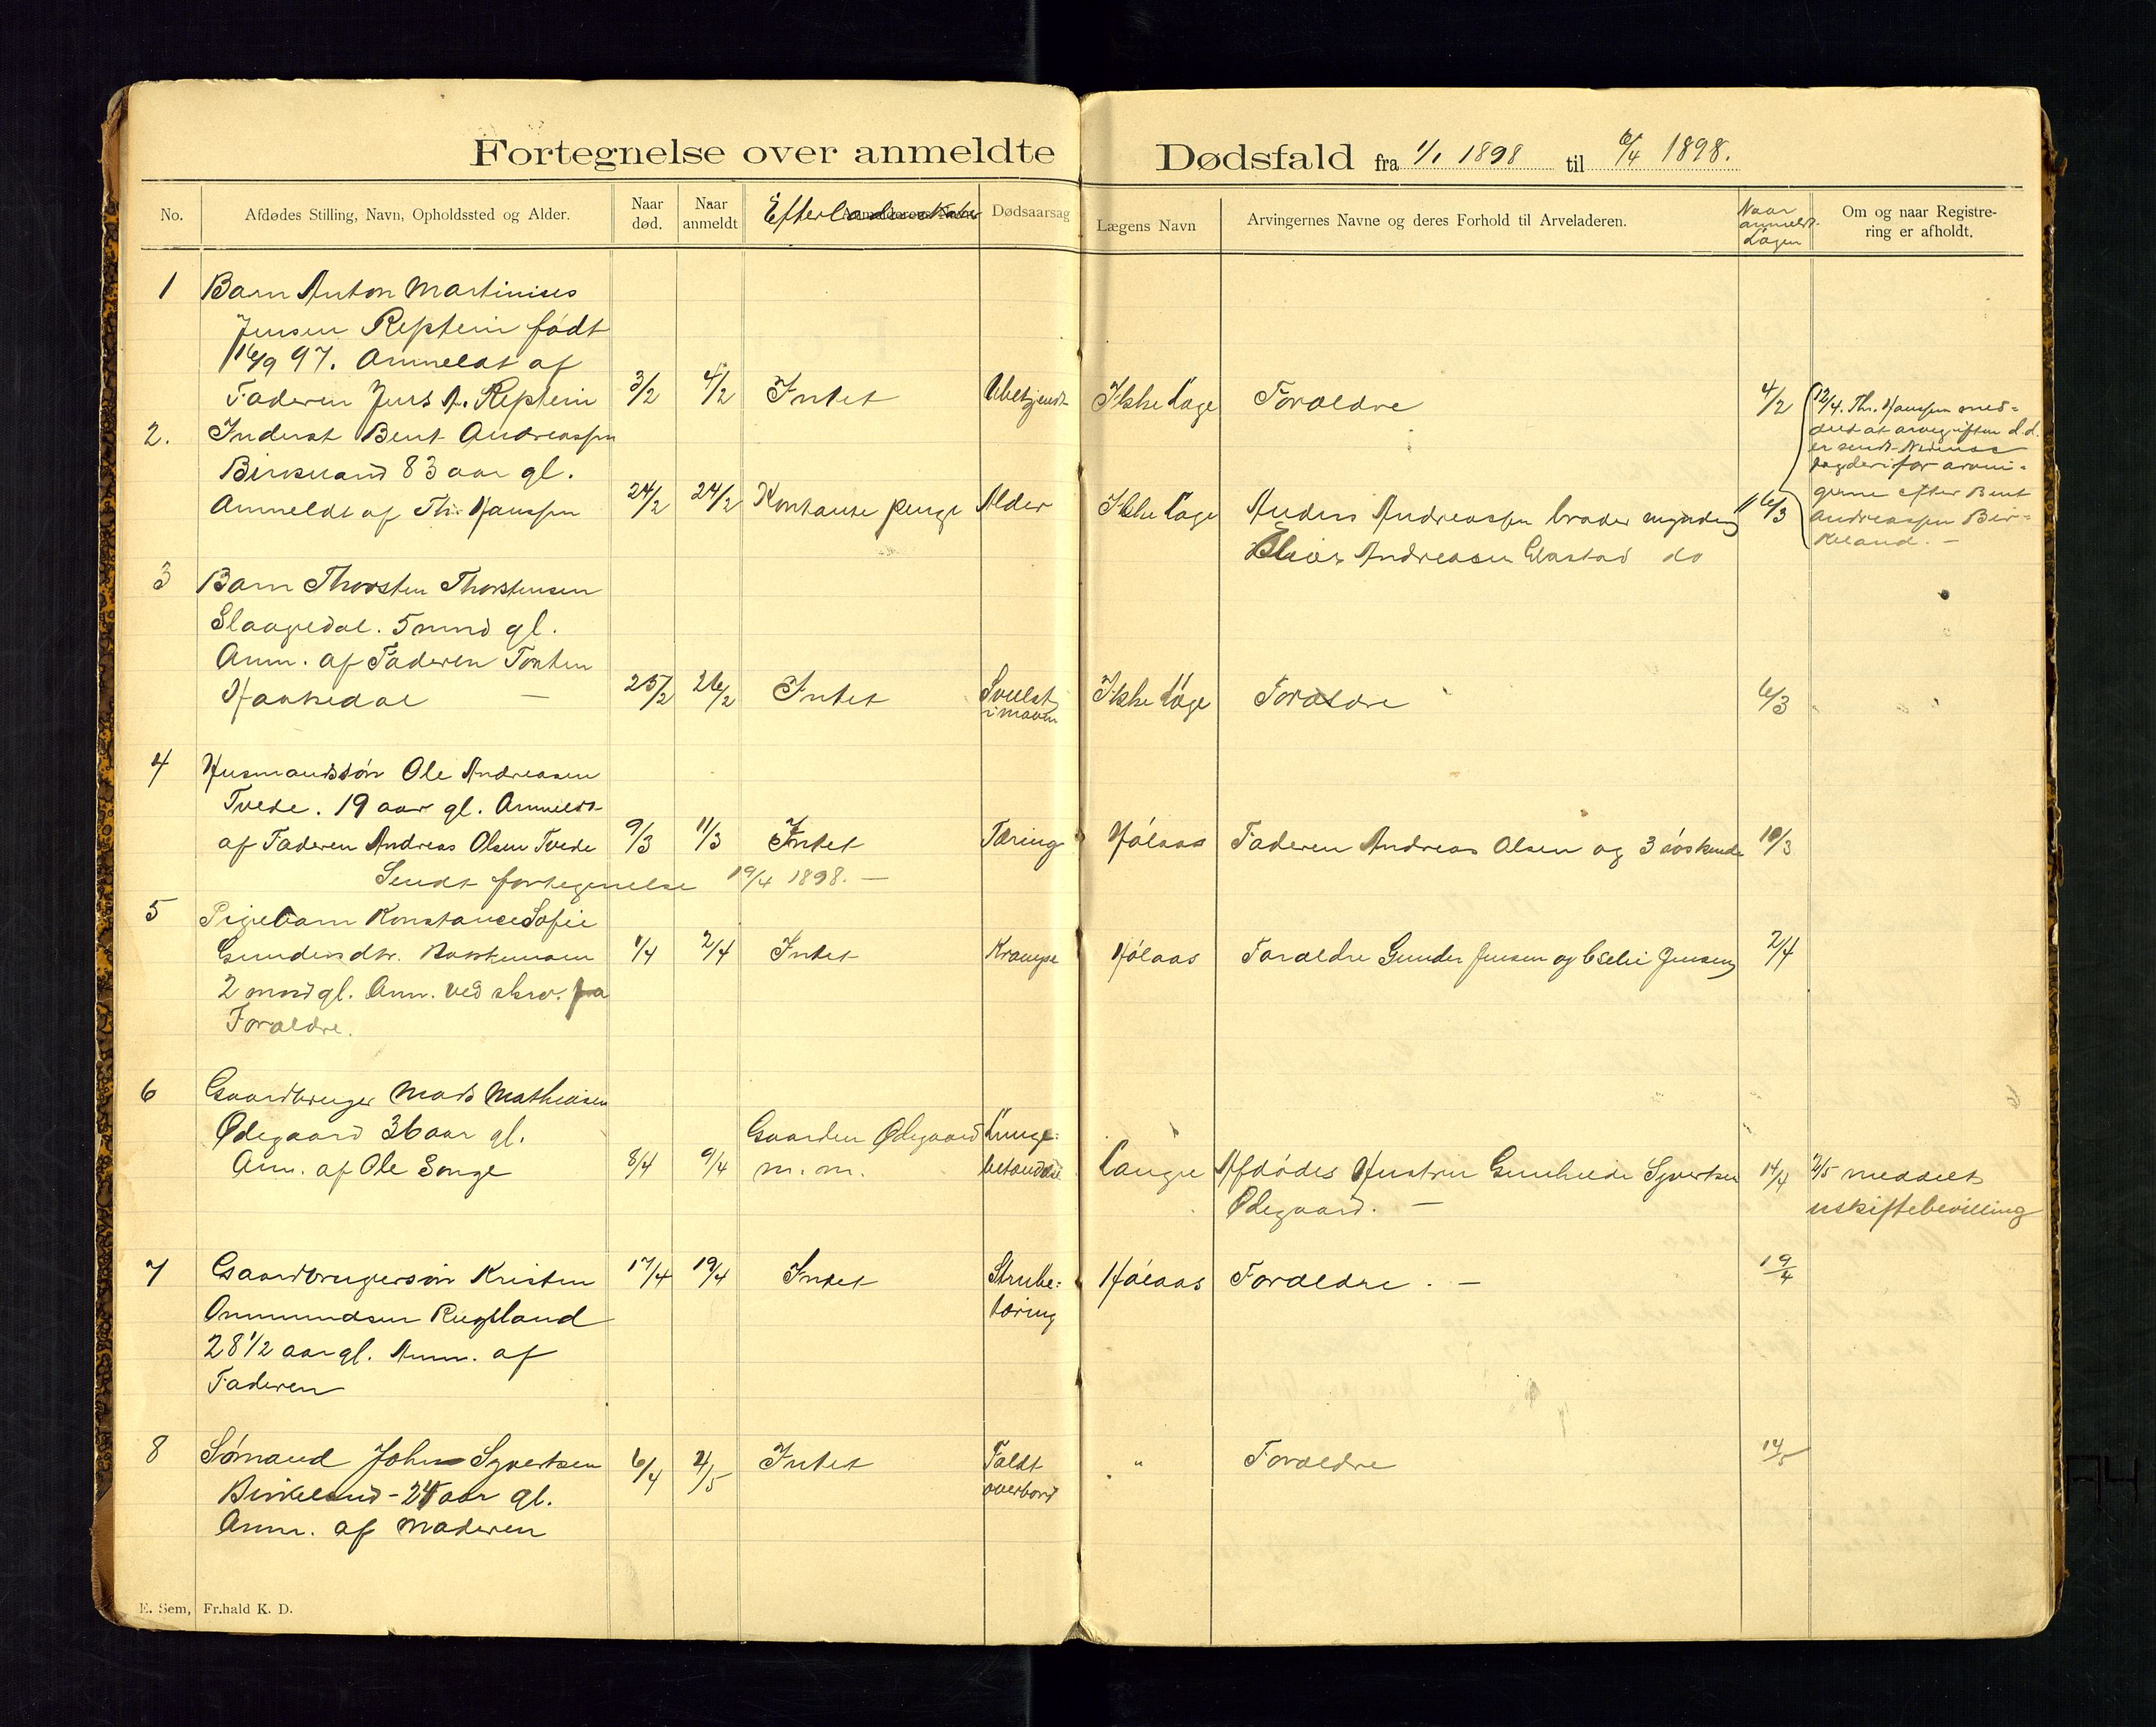 Fortegnelse over anmeldte Dødsfald fra 1/1 1898 til 6/4 1898.
No.
Afdødes Stilling, Navn, Opholdssted og Alder.
Naar død.
Naar anmeldt
Efterladenskaber
Dødsaarsag
Lægens Navn
Arvingernes Navne og deres Forhold til Arveladeren.
Naar anmeldt Lagen
Om og naar Registrering er afholdt.
1 Barn Anton Martinius
Jensen Repstein født
16/9 97. Anmeldt af
Faderen Jens A. Repstein 3/2 4/2 Intet Ubekjendt Ikke Læge Forældre 4/2
2. Inderst Bent Andreassen
Birkeland 83 aar gl.
Anmeldt af Th. Hanssen 24/2 24/2 Kontante penge Alder Ikke Læge Anders Andreassen broder myndig 6/3
Elias Andreasen Glastad do
12/4. Th. Hanssen med=
delt at arvegiften d.d.
er sendt Nedenæs
fogderi for arvin=
gerne efter Bent
Andreassen Bir=
keland. —
3 Barn Thorsten Thorstensen
Slaagedal. 5 mnd gl.
Anm. af Faderen Torsten
Haakedal — 25/2 26/2 Intet Svulst i maven Ikke Læge Forældre 6/3
4 Husmandssøn Ole Andreasen
Tvede. 19 aar gl. Anmeldt
af Faderen Andreas Olsen Tvede 9/3 11/3 Intet Tæring Hólaas Faderen Andreas Olsen og 3 søskende 10/3
Sendt fortegnelse 19/4 1898. —
5 Pigebarn Konstance Sofie
Gundersdtr. 1/4 2/4 Intet Krampe Hólaas Forældre Gunder Jensen og Jensen 2/4
2 mnd gl. Anm. ved skrv. fra
Forældre.
6 Gaardbruger Mads Mathiasen
Ødegaard 36 aar gl. Gaarden Ødegaard Lunge=
Anm. af Ole Songe 8/4 9/4 m. m. betændelse Lange Afdødes Hustru Gunhilde Syvertsen 14/4 2/5 meddelt
Ødegaard. — uskiftebevilling
7 Gaardbrugersøn Kristen 17/4 19/4 Intet Strube= Hólaas Forældre. — 19/4
Ommundsen Rugsland tæring
28 1/2 aar gl. Anm. af
Faderen
8 Sømand John Syvertsen 6/4 2/5 Intet Faldt " Forældre 14/5
Birkeland - 24 aar gl. overbord
Anm. af Moderen
E. Sem, Fr.hald K. D.